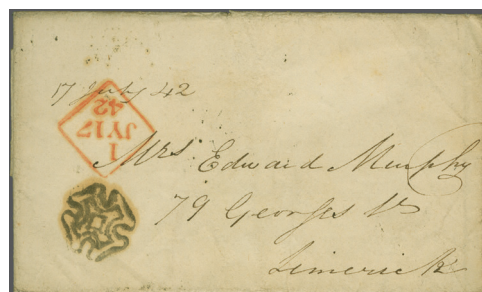 17 July 42
1
JY17
42
Mrs Edward Murphy
79 Georges St
Limerick